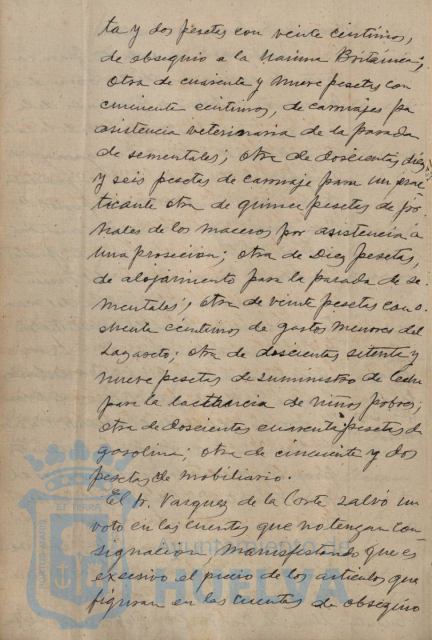 ta y dos pesetas con veinte centimos,
de obsequio a la Marina Británica;
Otra de cuarenta y nueve pesetas con
cincuenta centimos, de carruajes pa
asistencia veterinaria de la parada
de sementales; otra de doscientas diez
y seis pesetas de carruaje para un prac
ticante otra de quince pesetas de jor
nales de los maceros por asistencia a
una procesion; otra de Diez pesetas,
de alojamiento para la parada de se
mentales; otra de veinte pesetas con o
chenta centimos de gastos menores del
Lazareto; otra de doscientas setenta y
nueve pesetas de suministro de leche
para la lactancia de niños pobres;
otra de doscientas cuarenta pesetas de
gasolina; otra de cincuenta y dos
pesetas de mobiliario.
El Sr. Vazquez de la Corte salvó un
voto en las cuentas que no tengan con
signacion, manifestando que es
excesivo el precio de los articulos que
figuran en las cuentas de obsequio
Ayuntamiento de
HUELVA